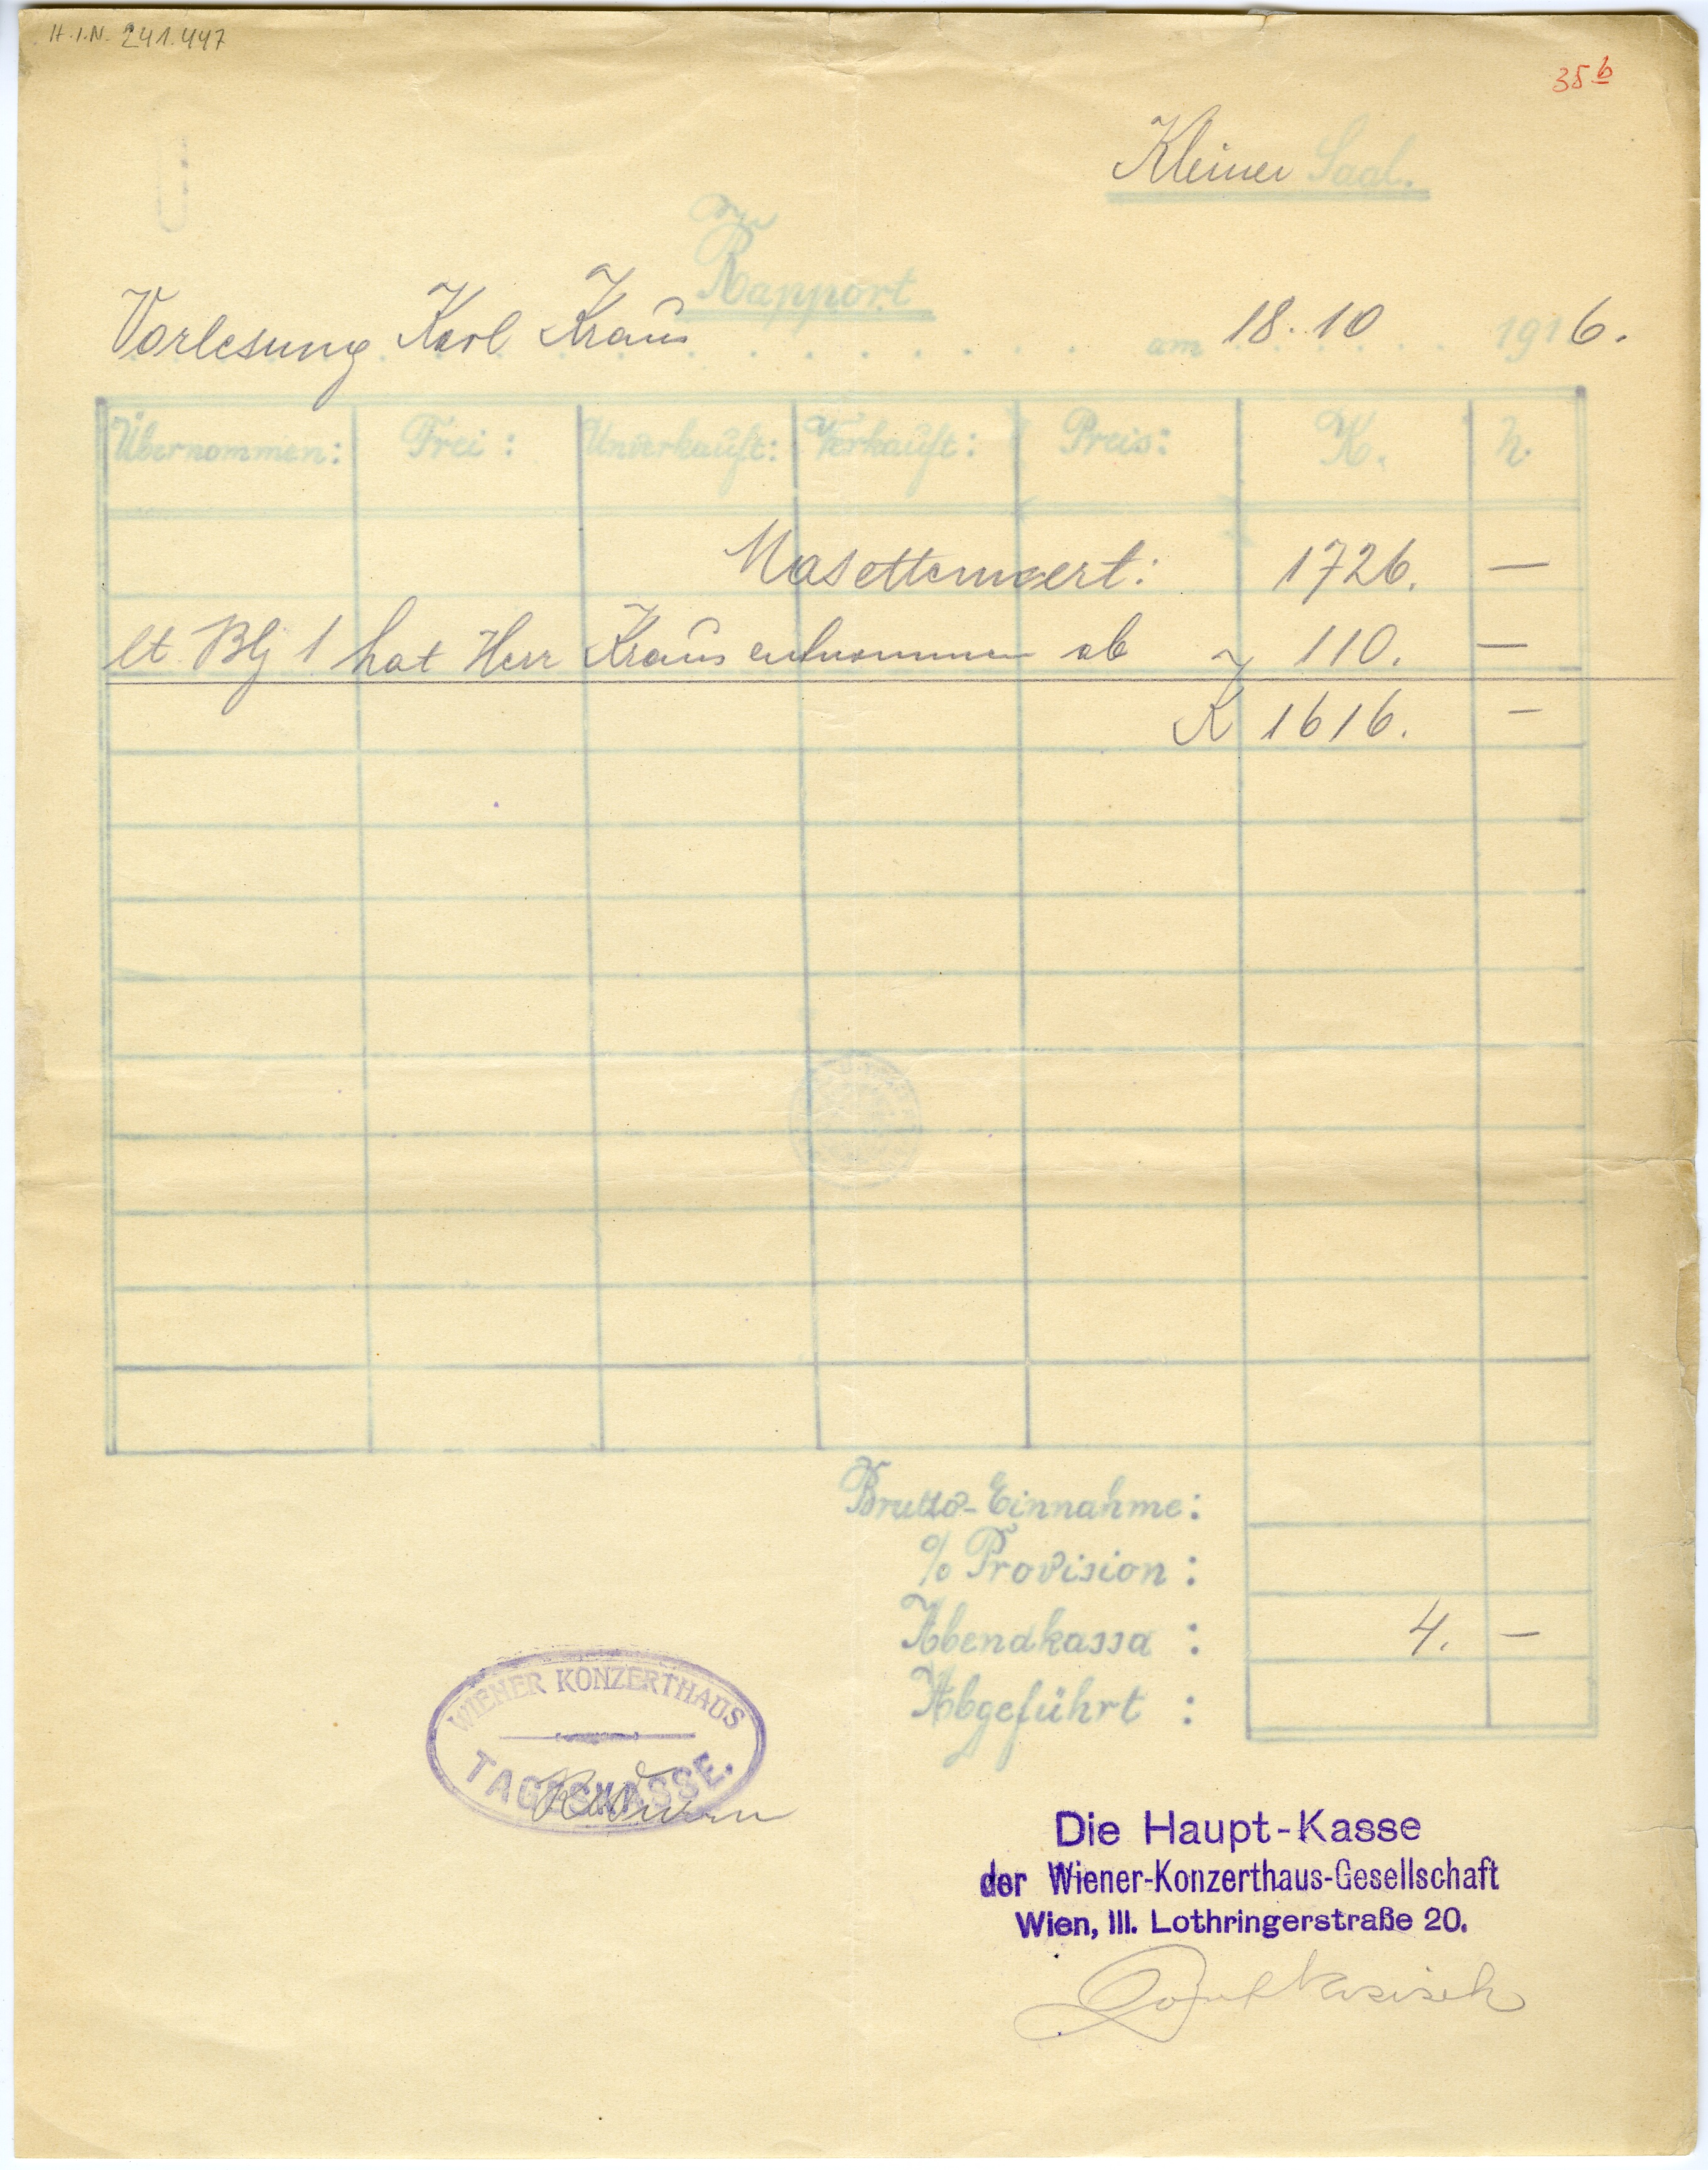 H.I.N. 241.447
35b
Kleiner Saal.
Rapport
Vorlesung Karl Kraus am 18.10 1916.
Übernommen: Frei: Unverkauft: Verkauft: Preis: K. h.
Masettenwert: 1726. —
lt Blj 1 hat Herr Kraus entnommen ab 110. —
K 1616. —
Brutto-Einnahme:
% Provision:
Abendkassa: 4. —
Abgeführt:
WIENER KONZERTHAUS
TAGESKASSE.
Die Haupt-Kasse
der Wiener-Konzerthaus-Gesellschaft
Wien, III. Lothringerstraße 20.